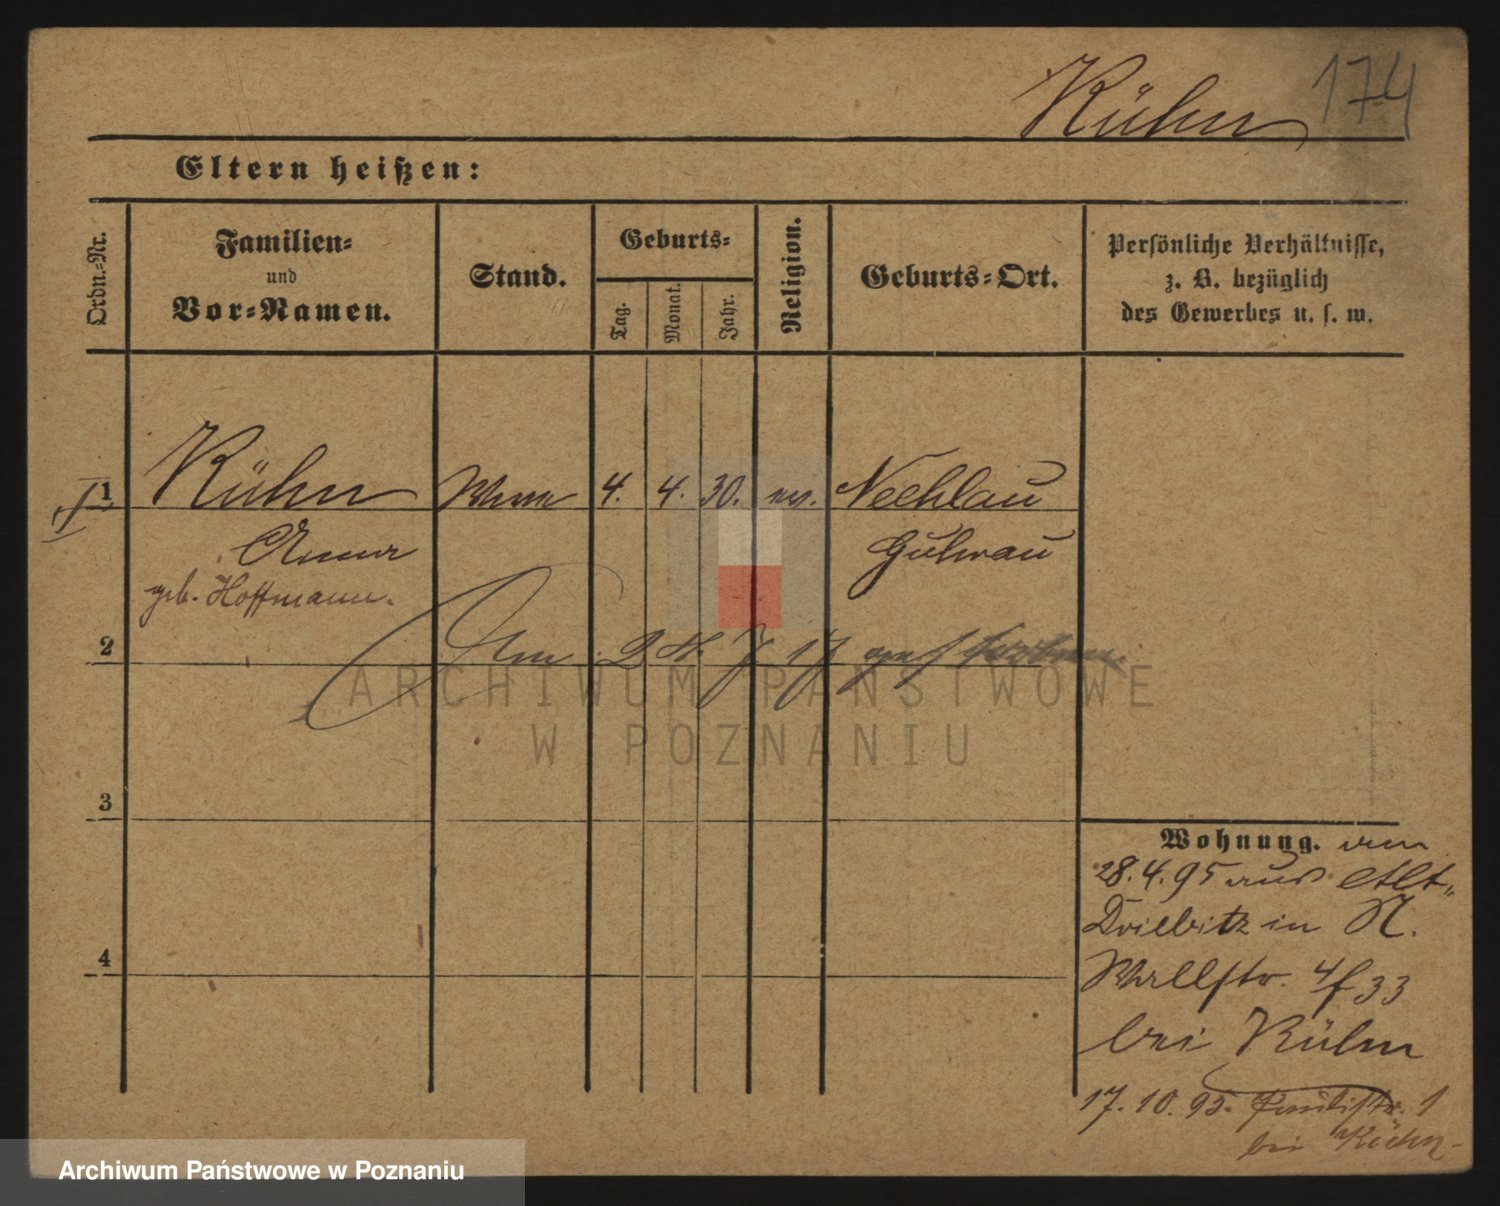 Kühn 174
Eltern heißen:
Ordn.=Nr.
Familien=
und
Vor=Namen.
Stand.
Geburts=
Tag.
Monat.
Jahr.
Religion.
Geburts=Ort.
Persönliche Verhältnisse,
z. B. bezüglich
des Gewerbes u. s. w.
1 Kühn Wwe 4. 4. 30. ev. Nechlau
Anna Guhrau
geb. Hoffmann.
2
ARCHIWUM PAŃSTWOWE
W POZNANIU
3
4
Wohnung. am
28.4.95 aus Alt=
Driebitz in N.
Wallstr. 4/33
bei Kühn
17. 10. 95. Paulistr. 1
bei Kühn
Archiwum Państwowe w Poznaniu